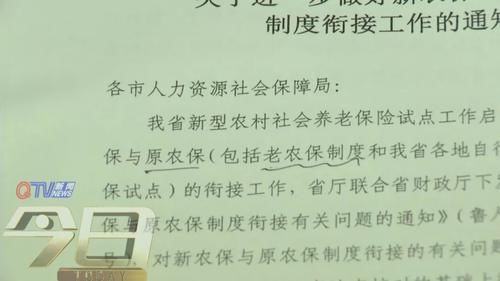 关于进一步做好新农保
制度衔接工作的通知
各市人力资源社会保障局：
我省新型农村社会养老保险试点工作启
保与原农保（包括老农保制度和我省各地自行
保试点）的衔接工作，省厅联合省财政厅下发
保与原农保制度衔接有关问题的通知》（鲁人
号），对新农保与原农保制度衔接的有关问题
QTV 新闻
NEWS
今日
TODAY